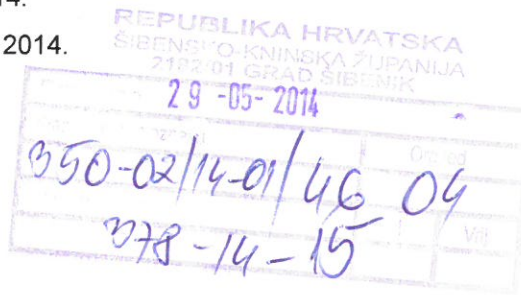 14.
2014.
REPUBLIKA HRVATSKA
ŠIBENSKO-KNINSKA ŽUPANIJA
2182-01 GRAD ŠIBENIK
29-05-2014
350-02/14-01/46 04
378-14-15